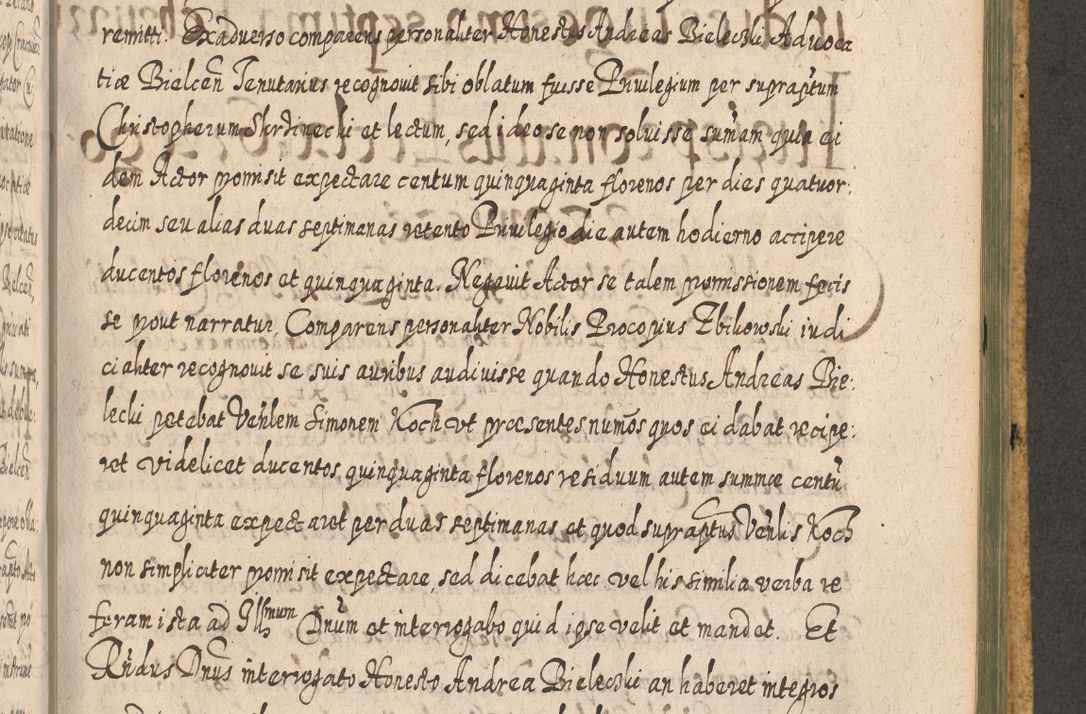 remitti. Ex adverso comparens personaliter Honestus Andreas Bielecki Advoca
tiæ Bielceñ Tenutarius recognovit sibi oblatum fuisse Privilegium per supraptum
Christopherum Skrzinecki et lectum, sed ideo se non solvisse sumam quia ei
dem Actor promisit expectare centum quinquaginta florenos per dies quatuor:
decim seu alias duas septimanas retento Privilegio die autem hodierno accipere
ducentos florenos et quinquaginta. Negavit Actor se talem promissionem fecis
se prout narratur, Comparens personaliter Nobilis Procopius Zbikowski iudi
cialiter recognovit se suis auribus audivisse quando Honestus Andreas Bie:
lecki petebat Venlem Simonem Koch ut præsentes numos quos ei dabat recipe:
ret videlicet ducentos quinquaginta florenos residuum autem summæ centū
quinquaginta expectaret per duas septimanas et quod supraptus Venlis Koch
non simpliciter promisit expectare, sed dicebat hæc vel his similia verba re
feram ista ad Illmum Dnum et interrogabo quid ipse velit et mandet. Et
Rndus Dnus interrogato Honesto Andrea Bielecki an haberet integros